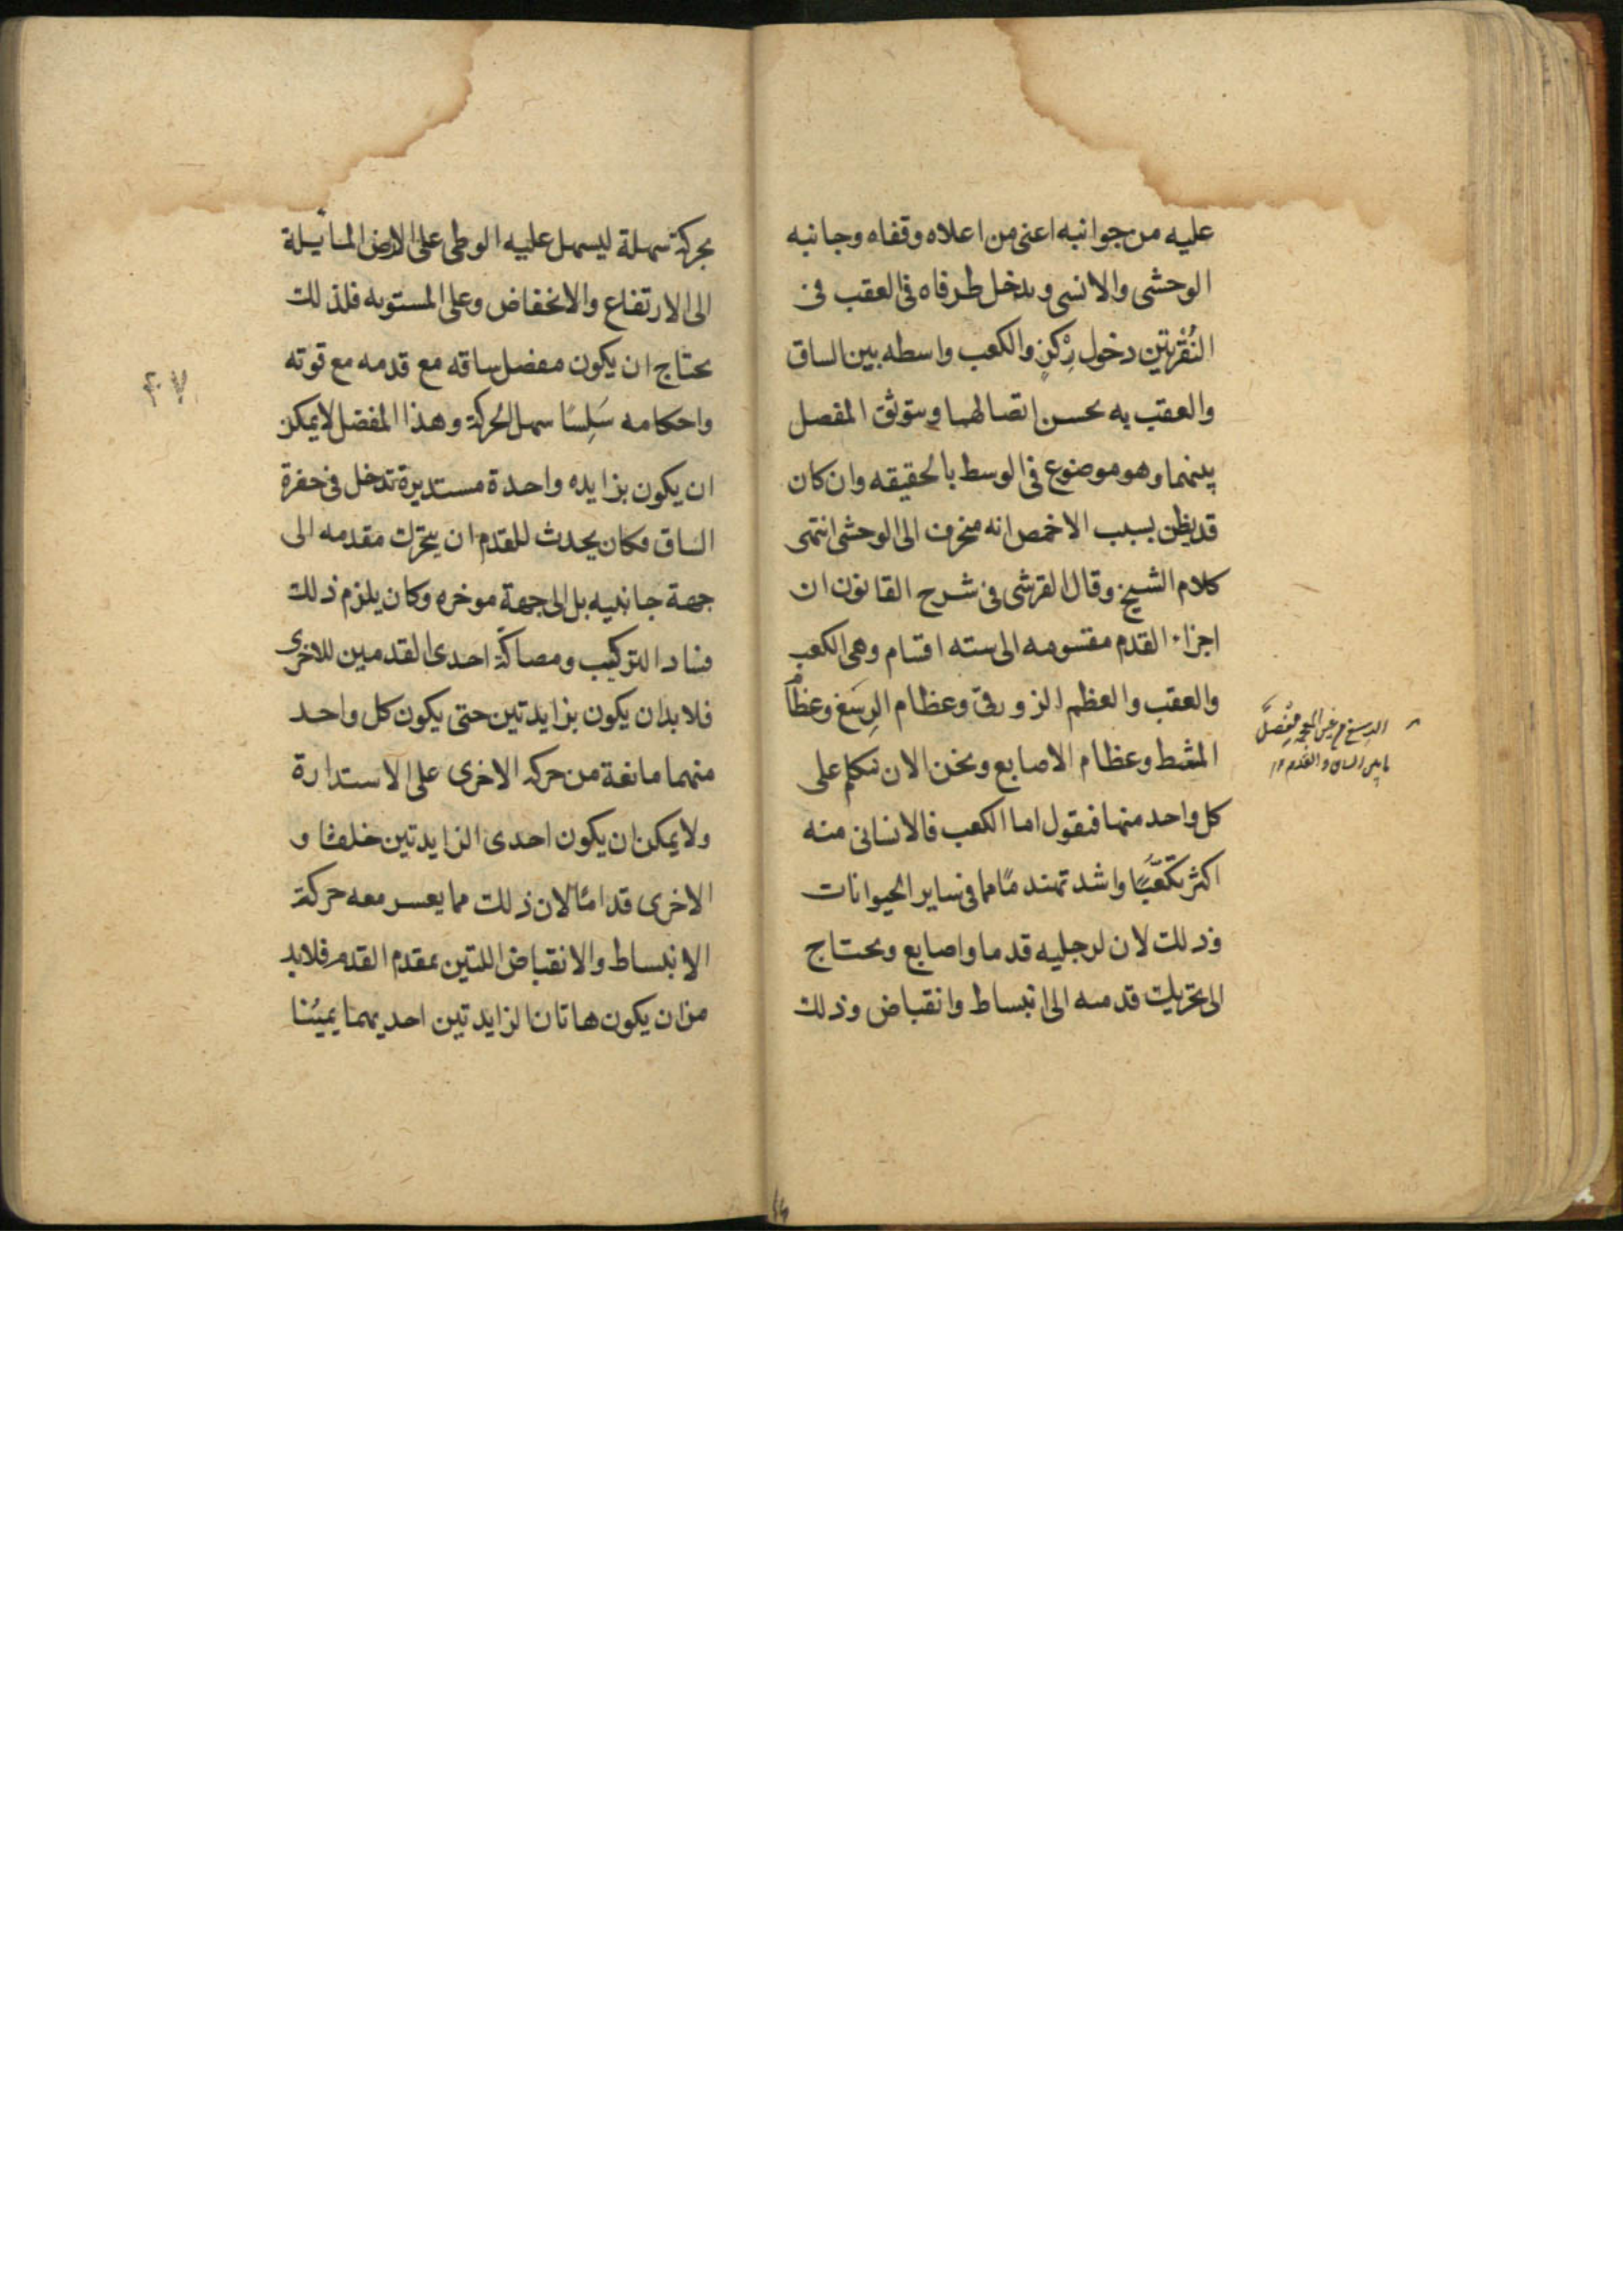 عليه من جوانبه اعنى من اعلاه وقفاه وجانبه
الوحشى والانسى ويدخل طرفاه فى العقب فى
النُقْرتين دخول رِكْز والكعب واسطه بين الساق
والعقب به يحسن اتصالهما ويتوثق المفصل
بينهما وهو موضوع فى الوسط بالحقيقه وان كان
قد يظن بسبب الاخمص انه منحرف الى الوحشى انتهى
كلام الشيخ وقال القرشى فى شرح القانون ان
اجزاء القدم مقسومه الى سته اقسام وهى الكعب
والعقب والعظم الزورقى وعظام الرسغ وعظام
المشط وعظام الاصابع ونحن الان نتكلم على
كل واحد منها فنقول اما الكعب فالانسانى منه
اكثر تكعّبًا واشد تهندمًا مما فى ساير الحيوانات
وذلك لان لرجليه قدما واصابع ويحتاج
الى تحريك قدمه الى انبساط وانقباض وذلك
الرسغ بالغين المعجمة مفصل
ما بين الساق والقدم
بحركة سهلة ليسهل عليه الوطى على الارض المائيلة
الى الارتفاع والانخفاض وعلى المستويه فلذلك
يحتاج ان يكون مفصل ساقه مع قدمه مع قوته
واحكامه سَلِسًا سهل الحركة وهذا المفصل لا يمكن
ان يكون بزايده واحدة مستديرة تدخل فى حفرة
الساق فكان يحدث للقدم ان يتحرك مقدمه الى
جهة جانبيه بل الى جهة موخره وكان يلزم ذلك
فساد التركيب ومصاكّة احدى القدمين للاخرى
فلا بد ان يكون بزايدتين حتى يكون كل واحد
منهما مانعة من حركه الاخرى على الاستدارة
ولا يمكن ان يكون احدى الزايدتين خلفا و
الاخرى قدامًا لان ذلك مما يعسر معه حركة
الانبساط والانقباض اللتين بمقدم القدم فلابد
من ان يكون هاتان الزايدتين احديهما يمينًا
۴۷